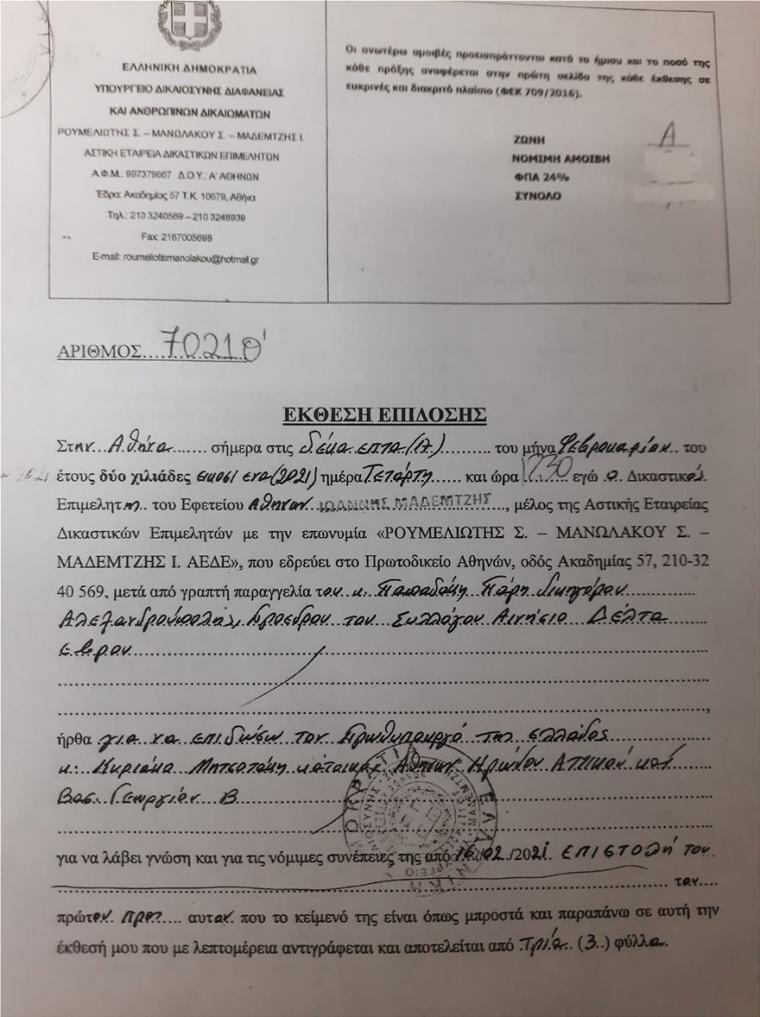 ΕΛΛΗΝΙΚΗ ΔΗΜΟΚΡΑΤΙΑ
ΥΠΟΥΡΓΕΙΟ ΔΙΚΑΙΟΣΥΝΗΣ ΔΙΑΦΑΝΕΙΑΣ
ΚΑΙ ΑΝΘΡΩΠΙΝΩΝ ΔΙΚΑΙΩΜΑΤΩΝ
ΡΟΥΜΕΛΙΩΤΗΣ Σ. – ΜΑΝΩΛΑΚΟΥ Σ. – ΜΑΔΕΜΤΖΗΣ Ι.
ΑΣΤΙΚΗ ΕΤΑΙΡΕΙΑ ΔΙΚΑΣΤΙΚΩΝ ΕΠΙΜΕΛΗΤΩΝ
Α.Φ.Μ.: 997379667 Δ.Ο.Υ.: Α΄ ΑΘΗΝΩΝ
Έδρα: Ακαδημίας 57 Τ.Κ. 10679, Αθήνα
Τηλ.: 210 3240569 – 210 3248939
Fax: 2167005698
E-mail: roumeliotismanolakou@hotmail.gr
Οι ανωτέρω αμοιβές προεισπράττονται κατά το ήμισυ και το ποσό της
κάθε πράξης αναφέρεται στην πρώτη σελίδα της κάθε έκθεσης σε
ευκρινές και διακριτό πλαίσιο (ΦΕΚ 709/2016).
ΖΩΝΗ Α
ΝΟΜΙΜΗ ΑΜΟΙΒΗ
ΦΠΑ 24%
ΣΥΝΟΛΟ
ΑΡΙΘΜΟΣ....7021Θ'
ΕΚΘΕΣΗ ΕΠΙΔΟΣΗΣ
Στην Αθήνα....... σήμερα στις δέκα επτά (17).......... του μήνα Φεβρουαρίου.. του
έτους δύο χιλιάδες εικοσι ένα (2021) ημέρα Τετάρτη...... και ώρα 1730 εγώ ο Δικαστικός
Επιμελητής του Εφετείου Αθηνών ΙΩΑΝΝΗΣ ΜΑΔΕΜΤΖΗΣ, μέλος της Αστικής Εταιρείας
Δικαστικών Επιμελητών με την επωνυμία «ΡΟΥΜΕΛΙΩΤΗΣ Σ. – ΜΑΝΩΛΑΚΟΥ Σ. –
ΜΑΔΕΜΤΖΗΣ Ι. ΑΕΔΕ», που εδρεύει στο Πρωτοδικείο Αθηνών, οδός Ακαδημίας 57, 210-32
40 569, μετά από γραπτή παραγγελία του κ. Παπαδάκη Πάρη δικηγόρου
Αλεξανδρούπολης, Προέδρου του Συλλόγου Αινήσιο Δέλτα
Εβρου
ήρθα για να επιδώσω τον Πρωθυπουργό της Ελλάδος
κ. Κυριάκο Μητσοτάκη κάτοικο Αθηνών Ηρώδου Αττικού και
Βασ. Γεωργίου Β
για να λάβει γνώση και για τις νόμιμες συνέπειες της από 16/02/2021 επιστολή του
του....
πρώτου προς.... αυτόν που το κείμενό της είναι όπως μπροστά και παραπάνω σε αυτή την
έκθεσή μου που με λεπτομέρεια αντιγράφεται και αποτελείται από τρία.. (3..) φύλλα.